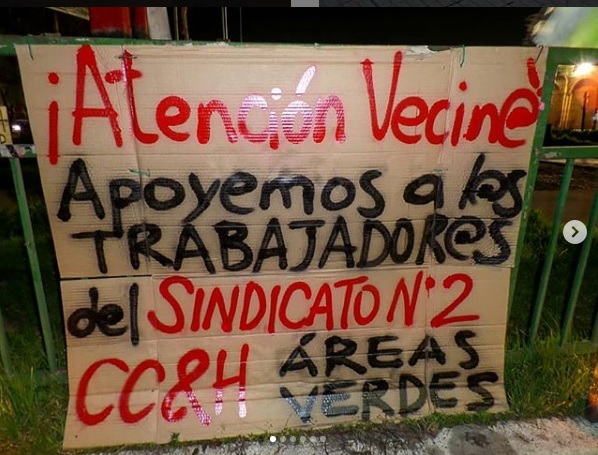 ¡Atención Vecin@!
Apoyemos a l@s
TRABAJADOR@S
del SINDICATO N°2
CC&H ÁREAS
VERDES